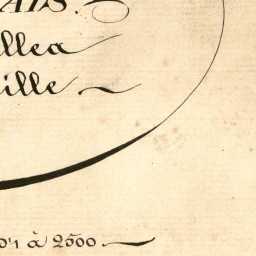 AIS.
illea
ille
01 à 2500